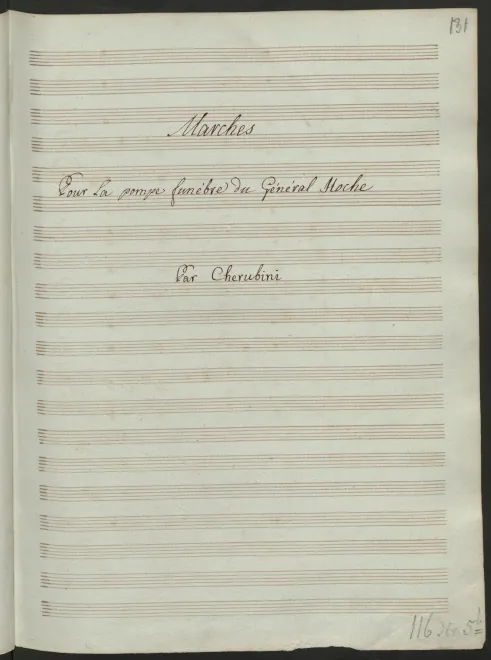 131
Marches
Pour La pompe funèbre du Général Hoche
Par Cherubini
116